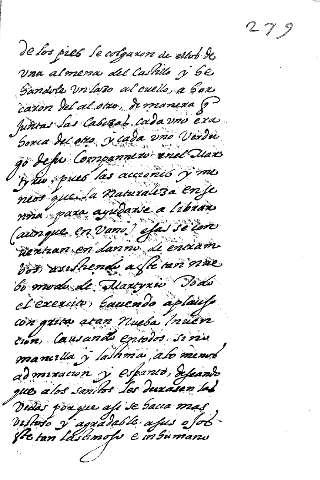 279
de los pies le colgaron de ellos de
una almena del Castillo y he
handole un laso al cuello, a hor
caron del al otro, de manera q
juntas las Cabezas cada uno era
horca del otro y cada uno Verdu
go de su Companero en el Mar
tyrio, pues las acciones y me
neos que la Naturaleza ense
nia para ayudarse a librar
(aunque en Vano) esas se con
uertian en danno de
asistiendo a este tan nue
bo modo de Martyrio Todo
el exercito, haciendo aplauso
con grita a tan Nueba Inuen
cion, Causando en todos, si no
mancilla y lastima, a lo menos
admiracion y espanto, deseando
que a los santos les durasen las
Vidas porque asi se hacia mas
vistoso y agradable a sus ojos
este tan lastimoso e inhumano